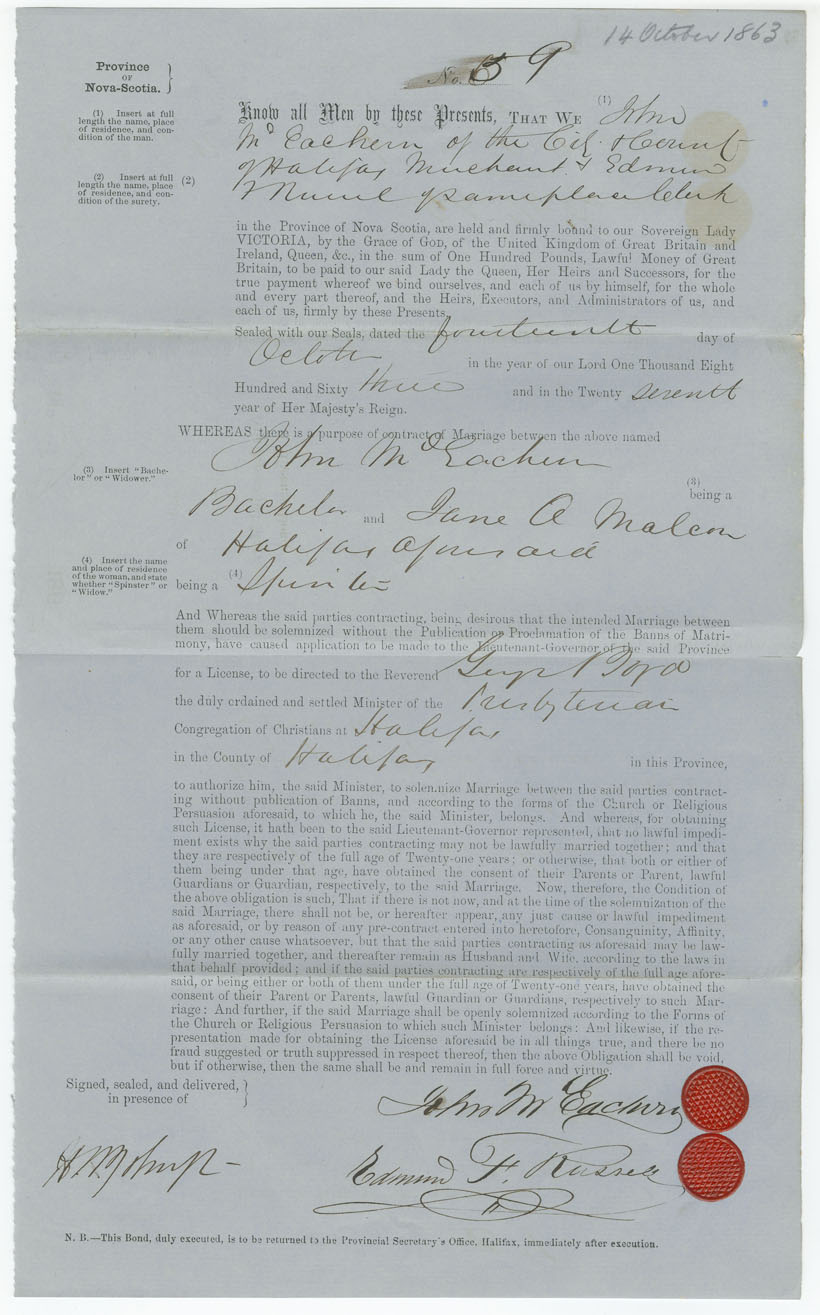 14 October 1863
No. 59
Province
OF
Nova-Scotia.
(1) Insert at full
length the name, place
of residence, and con-
dition of the man.
(2) Insert at full
length the name, place
of residence, and con-
dition of the surety.
Know all Men by these Presents, THAT WE (1) John
McEachern of the City & County
of Halifax Merchant & Edmund
(2) of same place Clerk
in the Province of Nova Scotia, are held and firmly bound to our Sovereign Lady
VICTORIA, by the Grace of GOD, of the United Kingdom of Great Britain and
Ireland, Queen, &c., in the sum of One Hundred Pounds, Lawful Money of Great
Britain, to be paid to our said Lady the Queen, Her Heirs and Successors, for the
true payment whereof we bind ourselves, and each of us by himself, for the whole
and every part thereof, and the Heirs, Executors, and Administrators of us, and
each of us, firmly by these Presents.
Sealed with our Seals, dated the fourteenth day of
October in the year of our Lord One Thousand Eight
Hundred and Sixty three and in the Twenty seventh
year of Her Majesty's Reign.
WHEREAS there is a purpose of contract of Marriage between the above named
John McEachern
(3) Insert "Bache-
lor" or "Widower."
(3)
being a
Bachelor and Jane A Malcom
of Halifax aforesaid
(4) Insert the name
and place of residence
of the woman, and state
whether "Spinster" or
"Widow."
being a (4) Spinster
And Whereas the said parties contracting, being desirous that the intended Marriage between
them should be solemnized without the Publication or Proclamation of the Banns of Matri-
mony, have caused application to be made to the Lieutenant-Governor of the said Province
for a License, to be directed to the Reverend George Boyd
the duly ordained and settled Minister of the Presbyterian
Congregation of Christians at Halifax
in the County of Halifax in this Province,
to authorize him, the said Minister, to solemnize Marriage between the said parties contract-
ing without publication of Banns, and according to the forms of the Church or Religious
Persuasion aforesaid, to which he, the said Minister, belongs. And whereas, for obtaining
such License, it hath been to the said Lieutenant-Governor represented, that no lawful impedi-
ment exists why the said parties contracting may not be lawfully married together; and that
they are respectively of the full age of Twenty-one years; or otherwise, that both or either of
them being under that age, have obtained the consent of their Parents or Parent, lawful
Guardians or Guardian, respectively, to the said Marriage. Now, therefore, the Condition of
the above obligation is such, That if there is not now, and at the time of the solemnization of the
said Marriage, there shall not be, or hereafter appear, any just cause or lawful impediment
as aforesaid, or by reason of any pre-contract entered into heretofore, Consanguinity, Affinity,
or any other cause whatsoever, but that the said parties contracting as aforesaid may be law-
fully married together, and thereafter remain as Husband and Wife, according to the laws in
that behalf provided; and if the said parties contracting are respectively of the full age afore-
said, or being either or both of them under the full age of Twenty-one years, have obtained the
consent of their Parent or Parents, lawful Guardian or Guardians, respectively to such Mar-
riage: And further, if the said Marriage shall be openly solemnized according to the Forms of
the Church or Religious Persuasion to which such Minister belongs: And likewise, if the re-
presentation made for obtaining the License aforesaid be in all things true, and there be no
fraud suggested or truth suppressed in respect thereof, then the above Obligation shall be void,
but if otherwise, then the same shall be and remain in full force and virtue.
Signed, sealed, and delivered,
in presence of
John McEachern
Edmund F. Russell
N. B.—This Bond, duly executed, is to be returned to the Provincial Secretary's Office, Halifax, immediately after execution.